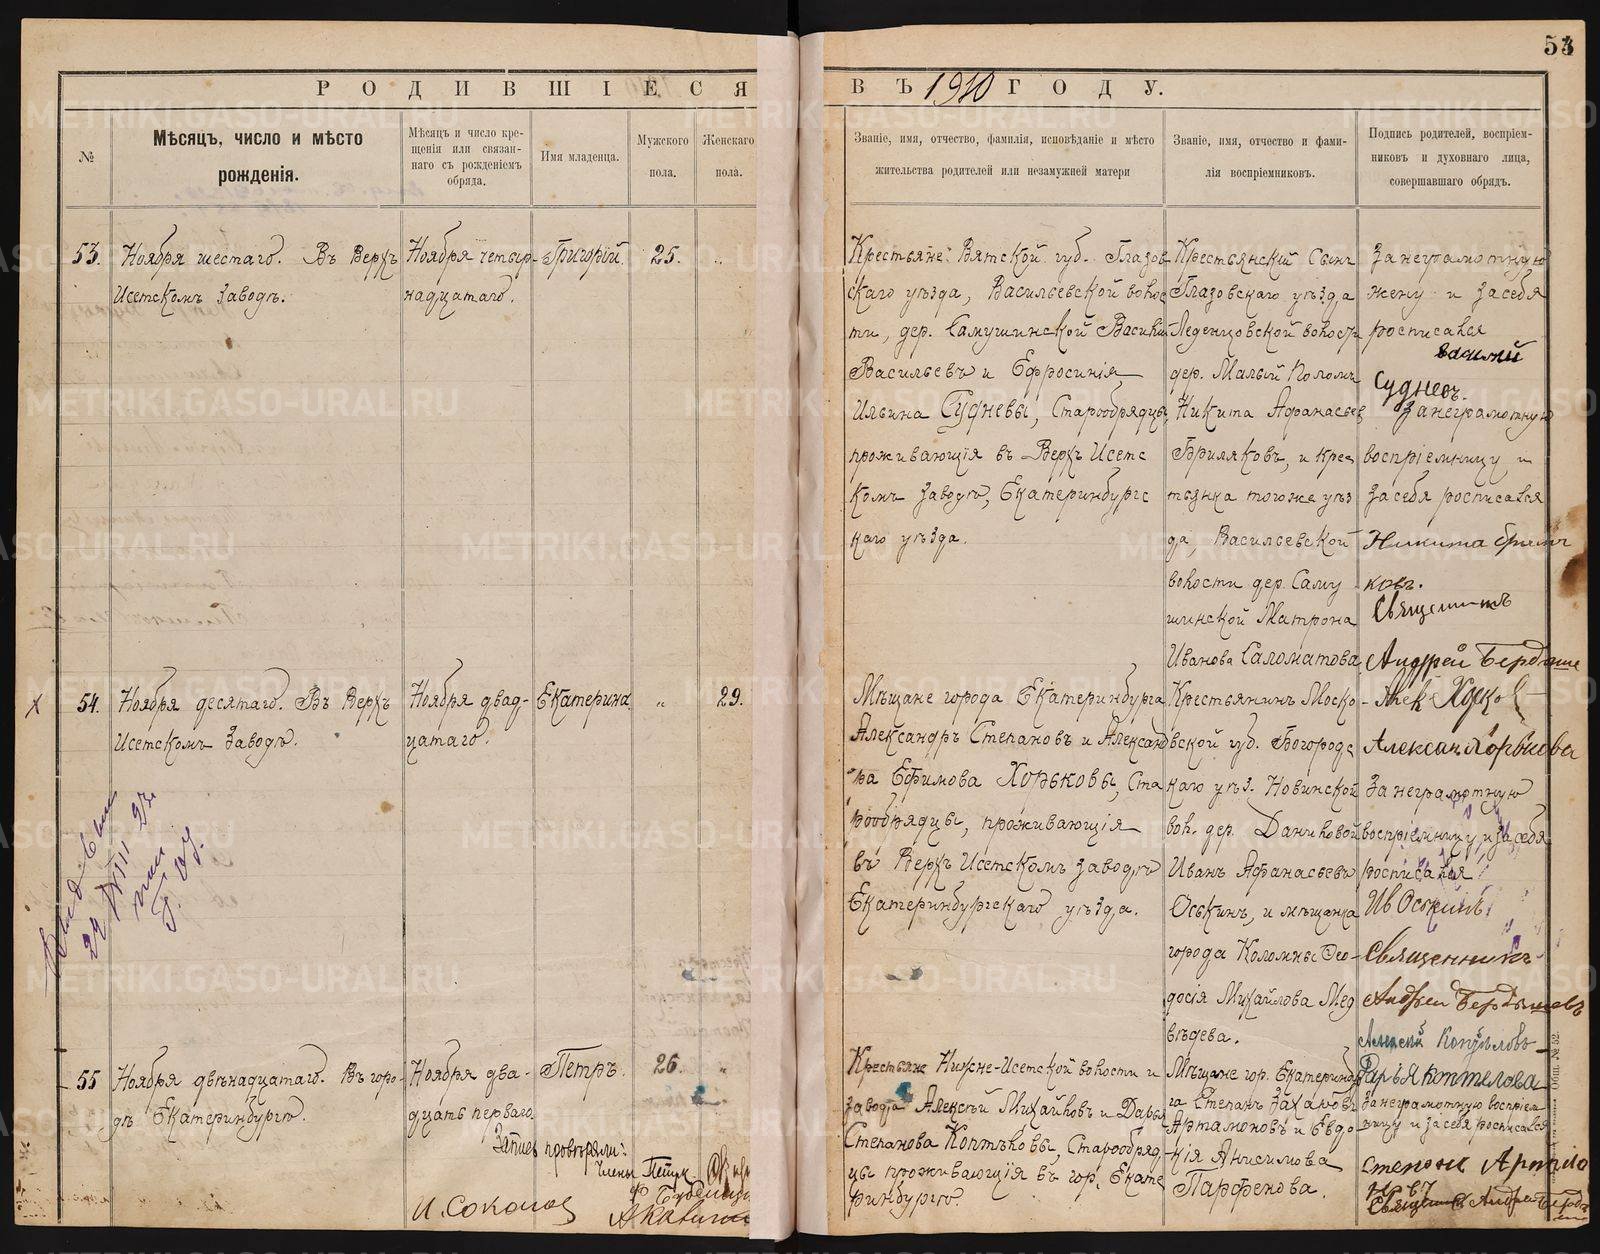 53
РОДИВШІЕСЯ ВЪ 1910 ГОДУ.
№
Мѣсяцъ, число и мѣсто
рожденія.
Мѣсяцъ и число кре-
щенія или связан-
наго съ рожденіемъ
обряда.
Имя младенца.
Мужского
пола.
Женскаго
пола.
Званіе, имя, отчество, фамилія, исповѣданіе и мѣсто
жительства родителей или незамужней матери
Званіе, имя, отчество и фами-
лія воспріемниковъ.
Подпись родителей, воспріем-
никовъ и духовнаго лица,
совершавшаго обрядъ.
53.
Ноября шестаго. Въ Верхъ
Исетскомъ Заводѣ.
Ноября четыр-
надцатаго.
Григорій.
25.
„
Крестьяне: Вятской губ. Глазов
скаго уѣзда, Васильевской волос
ти, дер. Самушинской Василий
Васильевъ и Ефросинія
Ильина Судневы, Старообрядцы,
проживающія въ Верхъ Исетс
комъ Заводѣ, Екатеринбургс
каго уѣзда.
Крестьянский Сынъ
Глазовскаго уѣзда
Леденцовской волости
дер. Малый Поломъ
Никита Афанасьев
Бриляковъ, и крес
тьянка тогоже уѣз
да, Васильевской
волости дер. Саму
шинской Матрона
Иванова Саломатова
За неграмотную
жену и за себя
росписался
василий
Судневъ.
За неграмотную
воспріемницу и
за себя росписался
Никита бриля
ковъ.
Священникъ
Андрей Бердыше
54.
Ноября десятаго. Въ Верхъ
Исетскомъ Заводѣ.
Ноября двад-
цатаго.
Екатерина
„
29.
Мѣщане города Екатеринбурга
Александръ Степановъ и Александ
ра Ефимова Хорьковы, Ста
рообрядцы, проживающія
въ Верхъ Исетскомъ Заводѣ
Екатеринбургскаго уѣзда.
Крестьянинъ Моско-
вской губ. Богородс
каго уѣз. Новинской
вол. дер. Даниловой
Иванъ Афанасьевъ
Оськинъ, и мѣщанка
города Коломны Фео-
досія Михайлова Мед
вѣдева.
Хорьков
Александ Хорькова
За неграмотную
воспріемницу, и за себя
росписался
Ив Оськинъ
Священникъ
Андрей Бердышевъ
55
Ноября двѣнадцатаго. Въ горо-
дѣ Екатеринбургѣ.
Ноября два-
дцать перваго.
Петръ.
26.
Крестьяне Нижне-Исетской волости и
завода Алексѣй Михайловъ и Дарья
Степанова Коптѣловы, Старообряд-
цы проживающія въ гор. Екате
ринбургѣ.
Мѣщане гор. Екатеринбур
га Степанъ Захаровъ
Артамоновъ и Евдо
кія Анисимова
Парфенова.
Алексей Коптеловъ
Дарья коптелова
За неграмотную воспріем
ницу и за себя росписался
степанъ Артамо
новъ
Священник Андрей Берды
Записи провѣряли:
Члены
И. Соколов